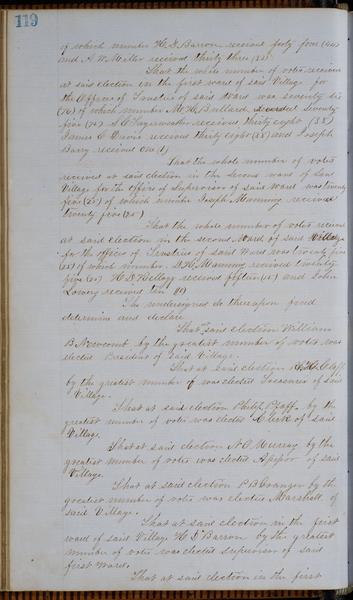 119
of which number H. D. Barron received forty four (44)
and A. W. Miller received thirty three (33).
That the whole number of votes received
at said election in the first ward of said Village for
the Offices of Trustees of said Ward was seventy six
(76) of which number M. H. Ballard received Seventy
five (75) received thirty eight (38)
James C. Davis received thirty eight (38) and Joseph
Barry received One (1)
That the whole number of votes
received at said election in the second ward of said
Village for the office of Supervisor of said Ward was twenty
five (25) of which number Joseph Manning received
twenty five (25)
That the whole number of votes received
at said election in the second Ward of said Village
for the offices of Trustees of said Ward was twenty five
(25) of which number D. H. Manning received twenty
five (25) H. D. received fifteen (15) and John
Lowry received ten (10)
The undersigned do thereupon find
determine and declare
That at said election William
B. Newcomb by the greatest number of votes was
elected President of said Village.
That at said election
by the greatest number of was elected Treasurer of said
Village.
That at said election Philip Pfaff by the
greatest number of votes was elected Clerk of said
Village.
That at said election N. C. Murray by the
greatest number of votes was elected Assessor of said
Village.
That at said election P. B. Granger by the
greatest number of votes was elected Marshall of
said Village.
That at said election in the first
ward of said Village H. D. Barron by the greatest
number of votes was elected supervisor of said
first Ward.
That at said election in the first